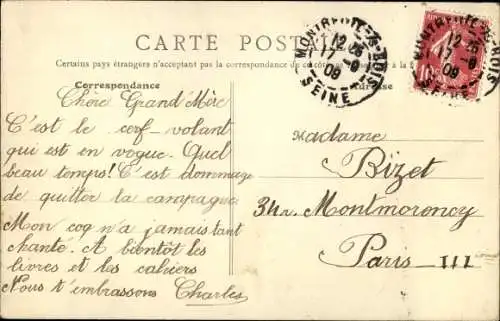 CARTE POSTALE
Certains pays étrangers n'acceptant pas la correspondance de ce côté
Correspondance
Adresse
MONTREUIL-S-BOIS
12 25
17 - 9
09
SEINE
MONTREUIL-S-BOIS
12 25
17 - 9
09
SEINE
10c
Chère Grand'Mère
C'est le cerf-volant
qui est en vogue. Quel
beau temps! C'est dommage
de quitter la campagne
Mon coq n'a jamais tant
chanté. A bientôt les
livres et les cahiers
Nous t'embrassons Charles
Madame
Bizet
Montmorency
Paris III